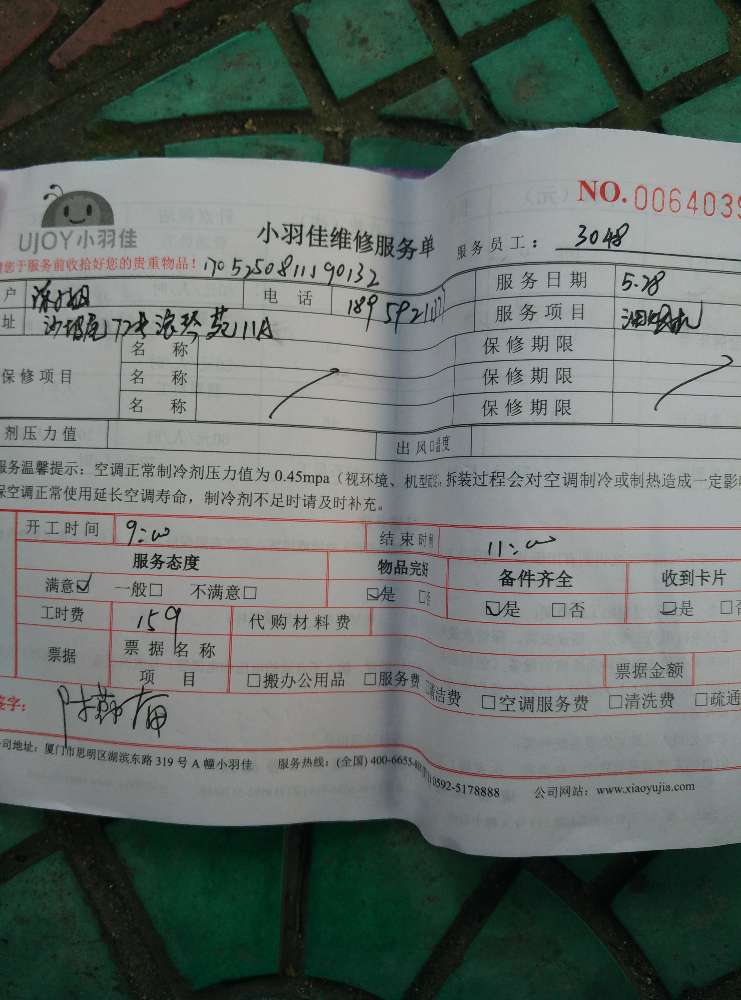 NO.0064039
UJOY小羽佳
小羽佳维修服务单
服务员工: 3048
您于服务前收拾好您的贵重物品! 170525081119 0132
户
电 话
服务日期 5.28
址 72号 11A
服务项目 油烟机
名 称
保修期限
保修项目
名 称
保修期限
名 称
保修期限
剂压力值
出风口温度
服务温馨提示:空调正常制冷剂压力值为 0.45mpa(视环境、机型而定,拆装过程会对空调制冷或制热造成一定影
保空调正常使用延长空调寿命,制冷剂不足时请及时补充。
开工时间 9:00
结束时间 11:00
服务态度
物品完好
备件齐全
收到卡片
满意☑ 一般□ 不满意□
☑是 □否
☑是 □否
☑是 □否
工时费 159
代购材料费
票据
票据名称
票据金额
项 目
□搬办公用品 □服务费 □清洁费 □空调服务费 □清洗费 □疏通
签字:
司地址:厦门市思明区湖滨东路 319 号 A 幢小羽佳 服务热线:(全国) 400-6655- 0592-5178888 公司网站:www.xiaoyujia.com